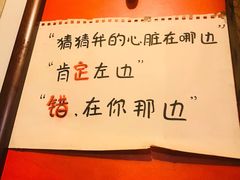 “猜猜我的心脏在哪边”
“肯定左边”
“错，在你那边”